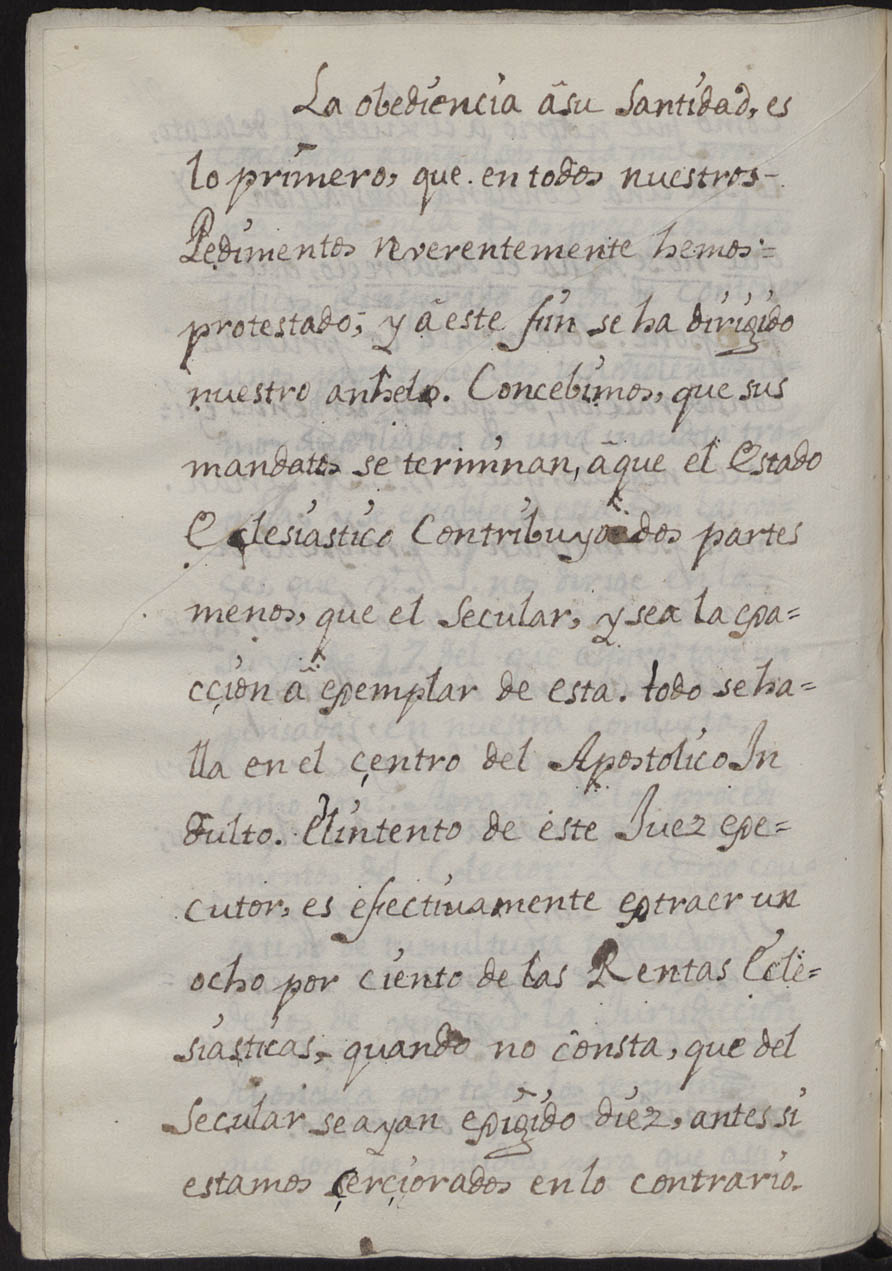 La obediencia â su Santidad, es
lo primero, que en todos nuestros-
Pedimentos reverentemente hemos=
protestado; y â este fin se ha dirigido
nuestro anhelo. Concebimos, que sus
mandatos se terminan, âque el Estado
Eclesiastico Contribuya dos partes
menos, que el Secular, y sea la exa=
ccion â exemplar de esta. todo se ha=
lla en el çentro del Apostolico In
dulto. El intento de este Juez exe=
cutor, es efectivamente extraer un
ocho por ciento de las Rentas Ecle=
siasticas, quando no consta, que del
Secular se ayan exigido diez, antes si
estamos çerçiorados en lo contrario.